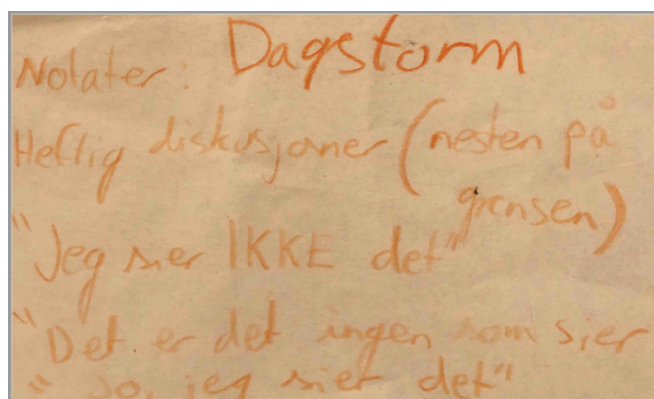 Notater: Dagstorm
Heftig diskusjoner (nesten på
grensen)
"Jeg sier IKKE det"
"Det er det ingen som sier
" Jo, jeg sier det"